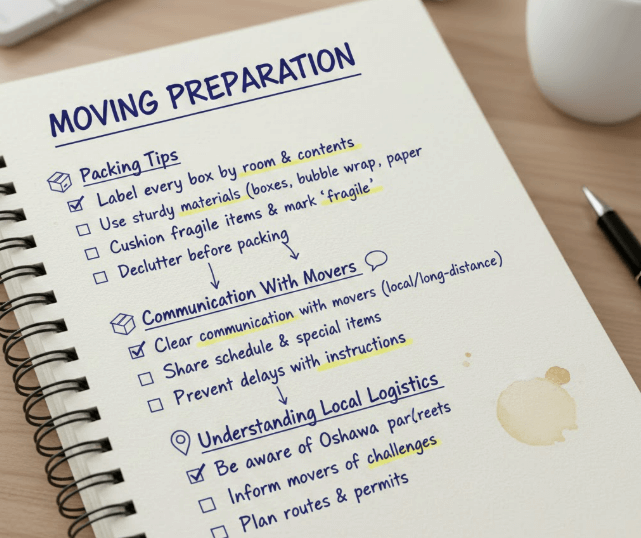 MOVING PREPARATION
Packing Tips
Label every box by room & contents
Use sturdy materials (boxes, bubble wrap, paper
Cushion fragile items & mark 'fragile'
Declutter before packing
Communication With Movers
Clear communication with movers (local/long-distance)
Share schedule & special items
Prevent delays with instructions
Understanding Local Logistics
Be aware of Oshawa
Inform movers of challenges
Plan routes & permits